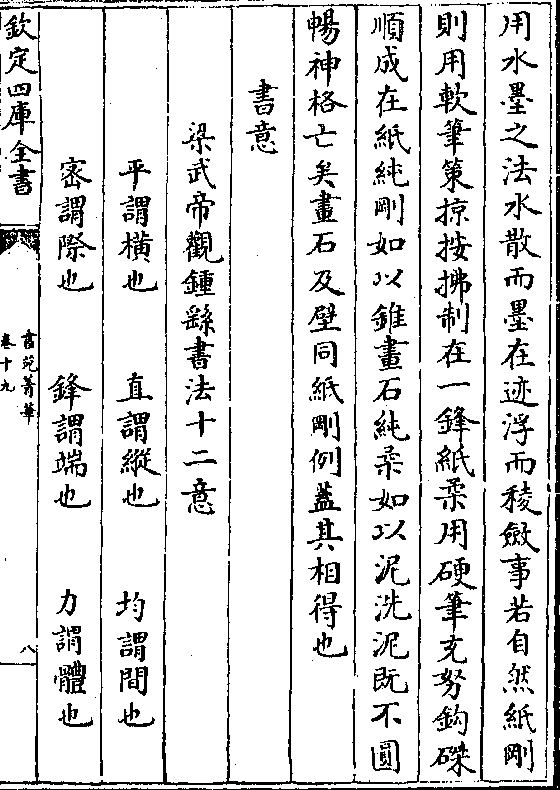 用水墨之法水散而墨在迹浮而稜斂事若自然紙剛
則用軟筆策掠按拂制在一鋒紙柔用硬筆充努鈎磔
順成在紙純剛如以錐畫石純柔如以泥洗泥既不圓
暢神格亡矣畫石及壁同紙剛例蓋其相得也
書意
梁武帝觀鍾繇書法十二意
平謂橫也 直謂縱也 均謂間也
密謂際也 鋒謂端也 力謂體也
欽定四庫全書
書苑菁華
卷十九
八